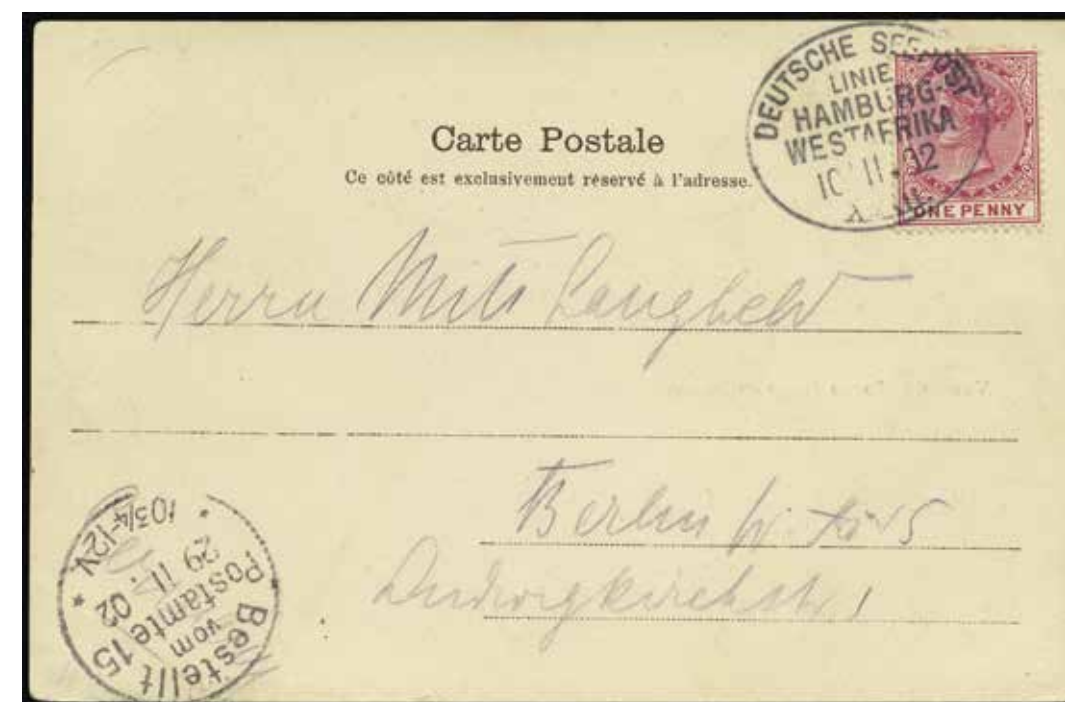 DEUTSCHE SEEPOST
LINIE
HAMBURG-
WESTAFRIKA
10 11. 02
ONE PENNY
Carte Postale
Ce côté est exclusivement réservé à l'adresse.
Herrn Langheld
Berlin W. 15
Ludwigkirchstr. 1
Bestellt
vom
Postamte 15
29 11. 02
10¾-12V.